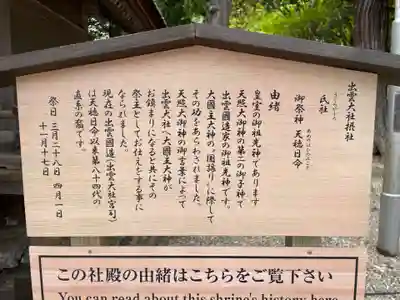 出雲大社摂社
うじのやしろ
氏社
あめのほひのみこと
御祭神 天穂日命
由緒
皇室の御祖光神であります
天照大御神の第二の御子神で
出雲國造家の御祖光神です。
大國主大神の”国譲り”に際して
その功をあらわされました。
天照大御神の御言葉によって
出雲大社へ大國主大神が
お鎮まりになると共にその
祭主としてお仕えをする事に
なられました。
現在の出雲國造(出雲大社宮司)
は天穂日命以来第八十四代の
直系の裔です。
祭日 三月二十八日 四月一日
十一月十七日
この社殿の由緒はこちらをご覧下さい
You can read about this shrine's history here